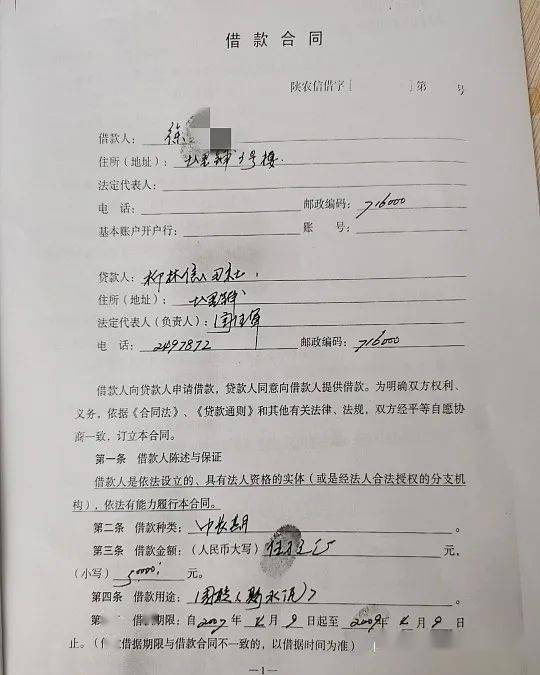 借款合同
陕农信借字[ ]第 号
借款人：徐
住所（地址）：
法定代表人：
电 话： 邮政编码：716000
基本账户开户行： 账 号：
贷款人：柳林信用社
住所（地址）：
法定代表人（负责人）：
电 话：2497872 邮政编码：716000
借款人向贷款人申请借款，贷款人同意向借款人提供借款。为明确双方权利、
义务，依据《合同法》、《贷款通则》和其他有关法律、法规，双方经平等自愿协
商一致，订立本合同。
第一条 借款人陈述与保证
借款人是依法设立的、具有法人资格的实体（或是经法人合法授权的分支机
构），依法有能力履行本合同。
第二条 借款种类：中长期。
第三条 借款金额：（人民币大写）伍万 元，
（小写）50000 元。
第四条 借款用途：（购水泥）。
第 借款期限：自2007年 月9日起至2009年 月9日
止。（ 借据期限与借款合同不一致的，以借据时间为准）
—1—